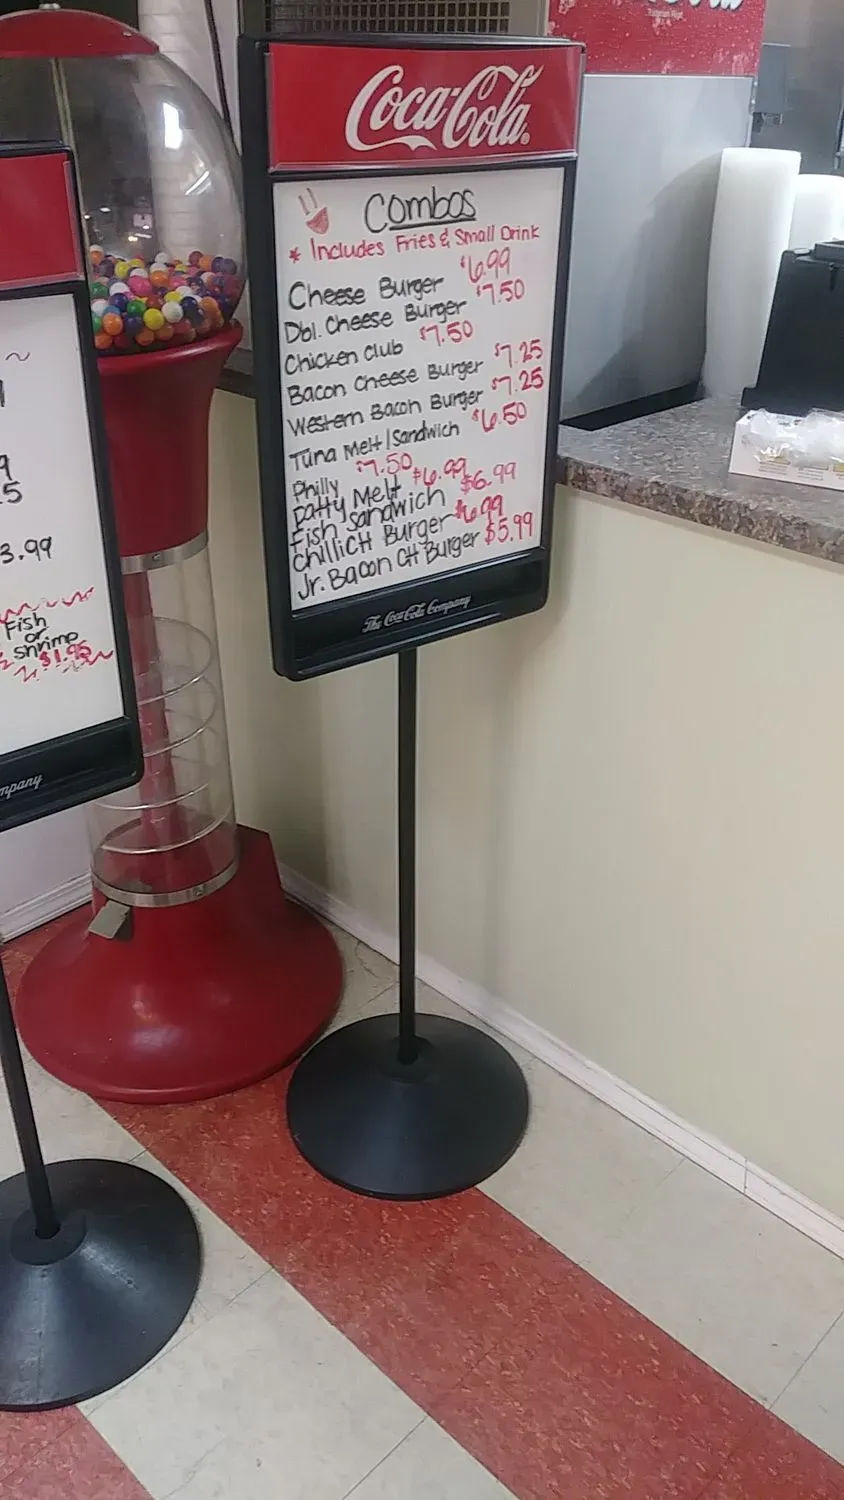 Coca-Cola
Combos
* Includes Fries & Small Drink
Cheese Burger $6.99
Dbl. Cheese Burger $7.50
Chicken Club $7.50
Bacon Cheese Burger $7.25
Western Bacon Burger $7.25
Tuna Melt/Sandwich $6.50
Philly $7.50
Patty Melt $6.99
Fish Sandwich $6.99
ChiliCH Burger $6.99
Jr. Bacon CH Burger $5.99
The Coca-Cola Company
3.99
Fish
or
Shrimp
$1.95
mpany